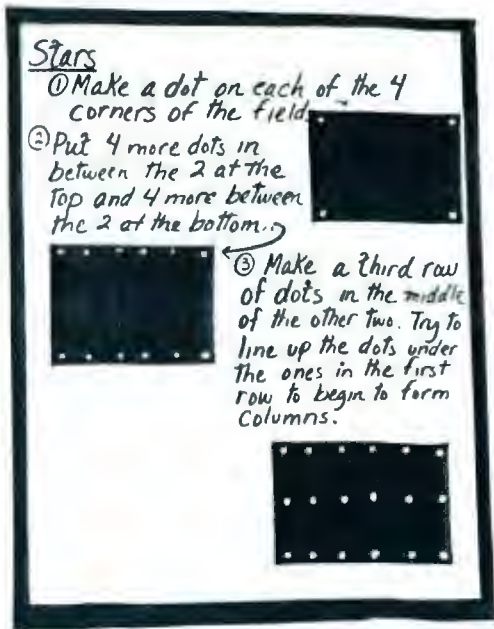 Stars
① Make a dot on each of the 4
corners of the field.
② Put 4 more dots in
between the 2 at the
top and 4 more between
the 2 at the bottom..
③ Make a third row
of dots in the middle
of the other two. Try to
line up the dots under
the ones in the first
row to begin to form
Columns.